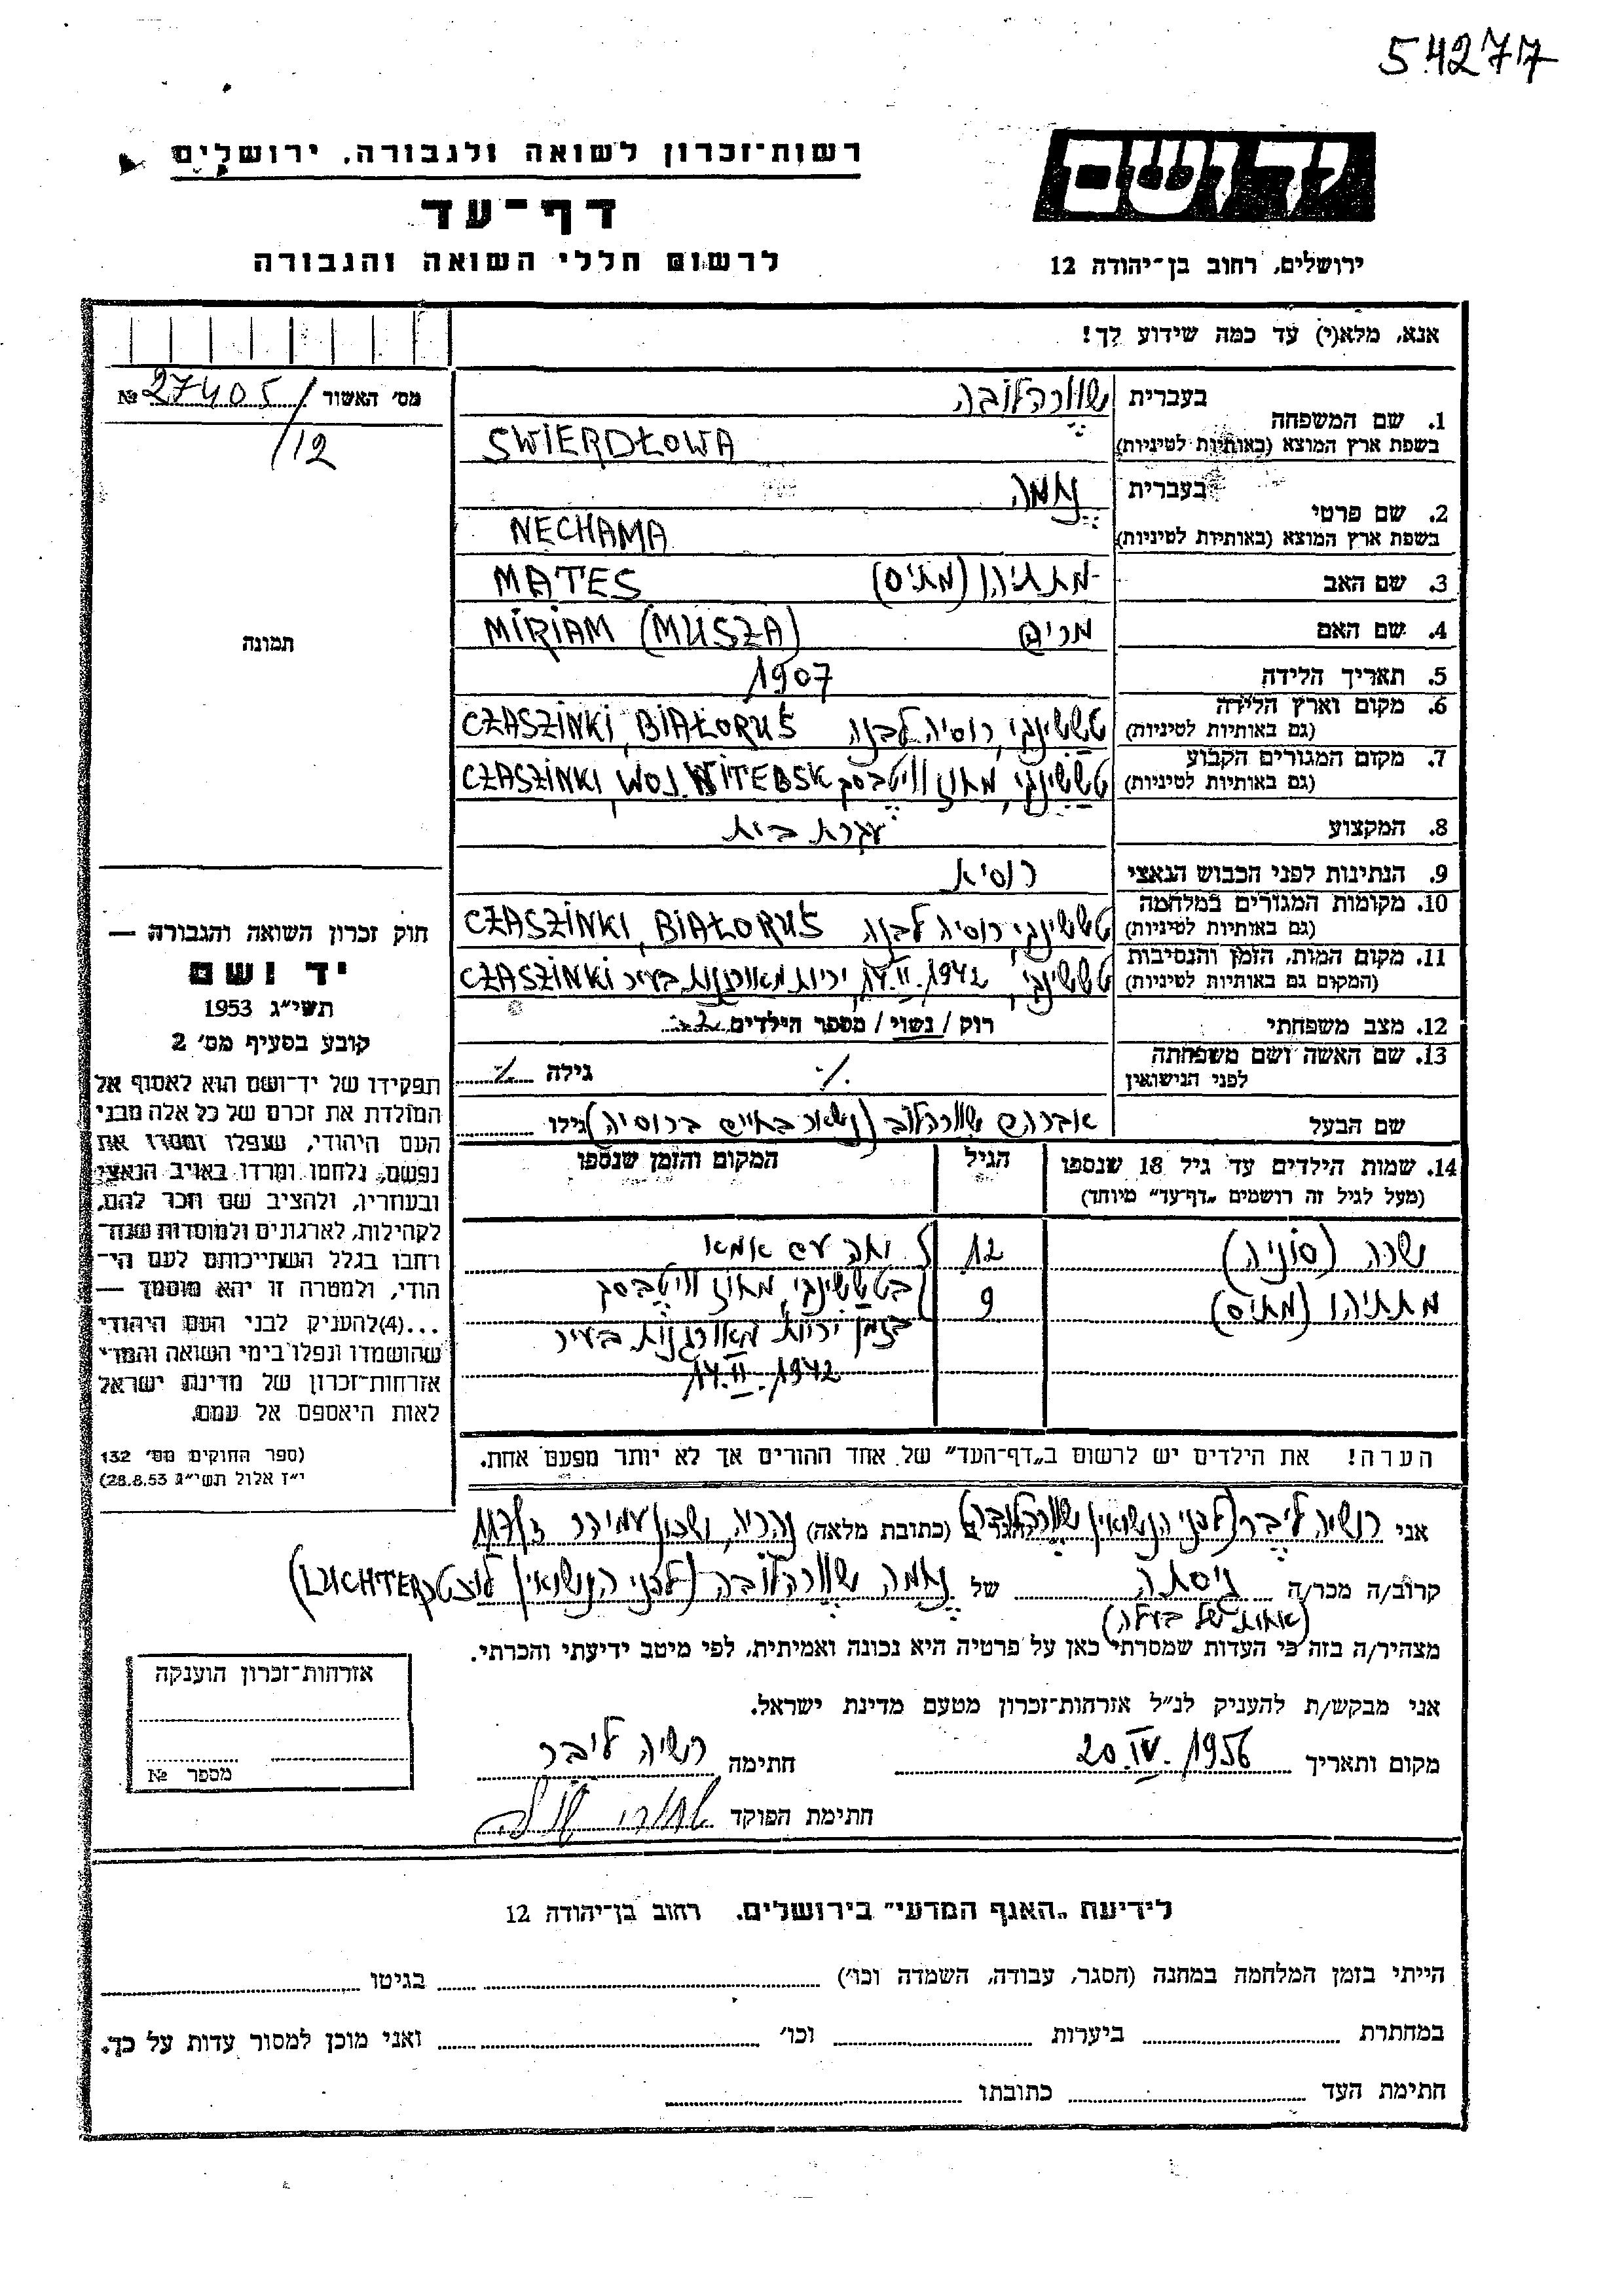 54277
יד ושם
ירושלים, רחוב בן־יהודה 12
רשות־זכרון לשואה ולגבורה, ירושלים
דף־עד
לרשום חללי השואה והגבורה
אנא, מלא(י) עד כמה שידוע לך!
מס׳ האשור № 27405/12
תמונה
1. שם המשפחה
בעברית שוורדלובה
בשפת ארץ המוצא (באותיות לטיניות) SWIERDŁOWA
2. שם פרטי
בעברית נחמה
בשפת ארץ המוצא (באותיות לטיניות) NECHAMA
3. שם האב מתתיהו (מתיס) MATES
4. שם האם מרים MIRIAM (MUSZA)
5. תאריך הלידה 1907
6. מקום וארץ הלידה
(גם באותיות לטיניות) טששינקי, רוסיה לבנה CZASZINKI, BIAŁORUŚ
7. מקום המגורים הקבוע
(גם באותיות לטיניות) טששינקי, מחוז וויטבסק CZASZINKI, WOJ. WITEBSK
8. המקצוע עקרת בית
9. הנתינות לפני הכבוש הנאצי רוסית
10. מקומות המגורים במלחמה
(גם באותיות לטיניות) טששינקי, רוסיה לבנה CZASZINKI, BIAŁORUŚ
11. מקום המות, הזמן והנסיבות
(המקום גם באותיות לטיניות) טששינקי, 14.II.1942, יריות מאורגנות בעיר CZASZINKI
12. מצב משפחתי רוק/נשוי/מספר הילדים 2
13. שם האשה ושם משפחתה
לפני הנישואין ·/. גילה ·/.
שם הבעל אברהם שוורדלוב (נשאר בחיים ברוסיה) גילו
14. שמות הילדים עד גיל 18 שנספו
(מעל לגיל זה רושמים „דף־עד״ מיוחד)
הגיל
המקום והזמן שנספו
שרה (סוניה) 12 יחד עם אמא
מתתיהו (מתיס) 9 בטששינקי, מחוז וויטבסק
בזמן יריות מאורגנות בעיר
14.II.1942
הערה! את הילדים יש לרשום ב„דף־העד״ של אחד ההורים אך לא יותר מפעם אחת.
חוק זכרון השואה והגבורה —
יד ושם
תשי״ג 1953
קובע בסעיף מס׳ 2
תפקידו של יד־ושם הוא לאסוף אל
המולדת את זכרם של כל אלה מבני
העם היהודי, שנפלו ומסרו את
נפשם, נלחמו ומרדו באויב הנאצי
ובעוזריו, ולהציב שם וזכר להם,
לקהילות, לארגונים ולמוסדות שנח־
רבו בגלל השתייכותם לעם הי־
הודי, ולמטרה זו יהא מוסמך —
...(4)להעניק לבני העם היהודי
שהושמדו ונפלו בימי השואה והמרי
אזרחות־זכרון של מדינת ישראל
לאות היאספם אל עמם.
(ספר החוקים מס׳ 132
י״ז אלול תשי״ג 28.8.53)
אני רשיה ליבר (לפני הנשואין שוורדלובה) (כתובת מלאה) נהריה, שכון עמידר
קרוב/ה מכר/ה גיסתה של נחמה שוורדלובה (לפני הנשואין לוכטר LUCHTER)
(אחות של בעלה)
מצהיר/ה בזה כי העדות שמסרתי כאן על פרטיה היא נכונה ואמיתית, לפי מיטב ידיעתי והכרתי.
אני מבקש/ת להעניק לנ״ל אזרחות־זכרון מטעם מדינת ישראל.
מקום ותאריך 20.IV.1956 חתימה רשיה ליבר
חתימת הפוקד
אזרחות־זכרון הוענקה
מספר №
לידיעת „האגף המדעי״ בירושלים. רחוב בן־יהודה 12
הייתי בזמן המלחמה במחנה (הסגר, עבודה, השמדה וכו׳) בגיטו
במחתרת ביערות וכו׳ ואני מוכן למסור עדות על כך.
חתימת העד כתובתו